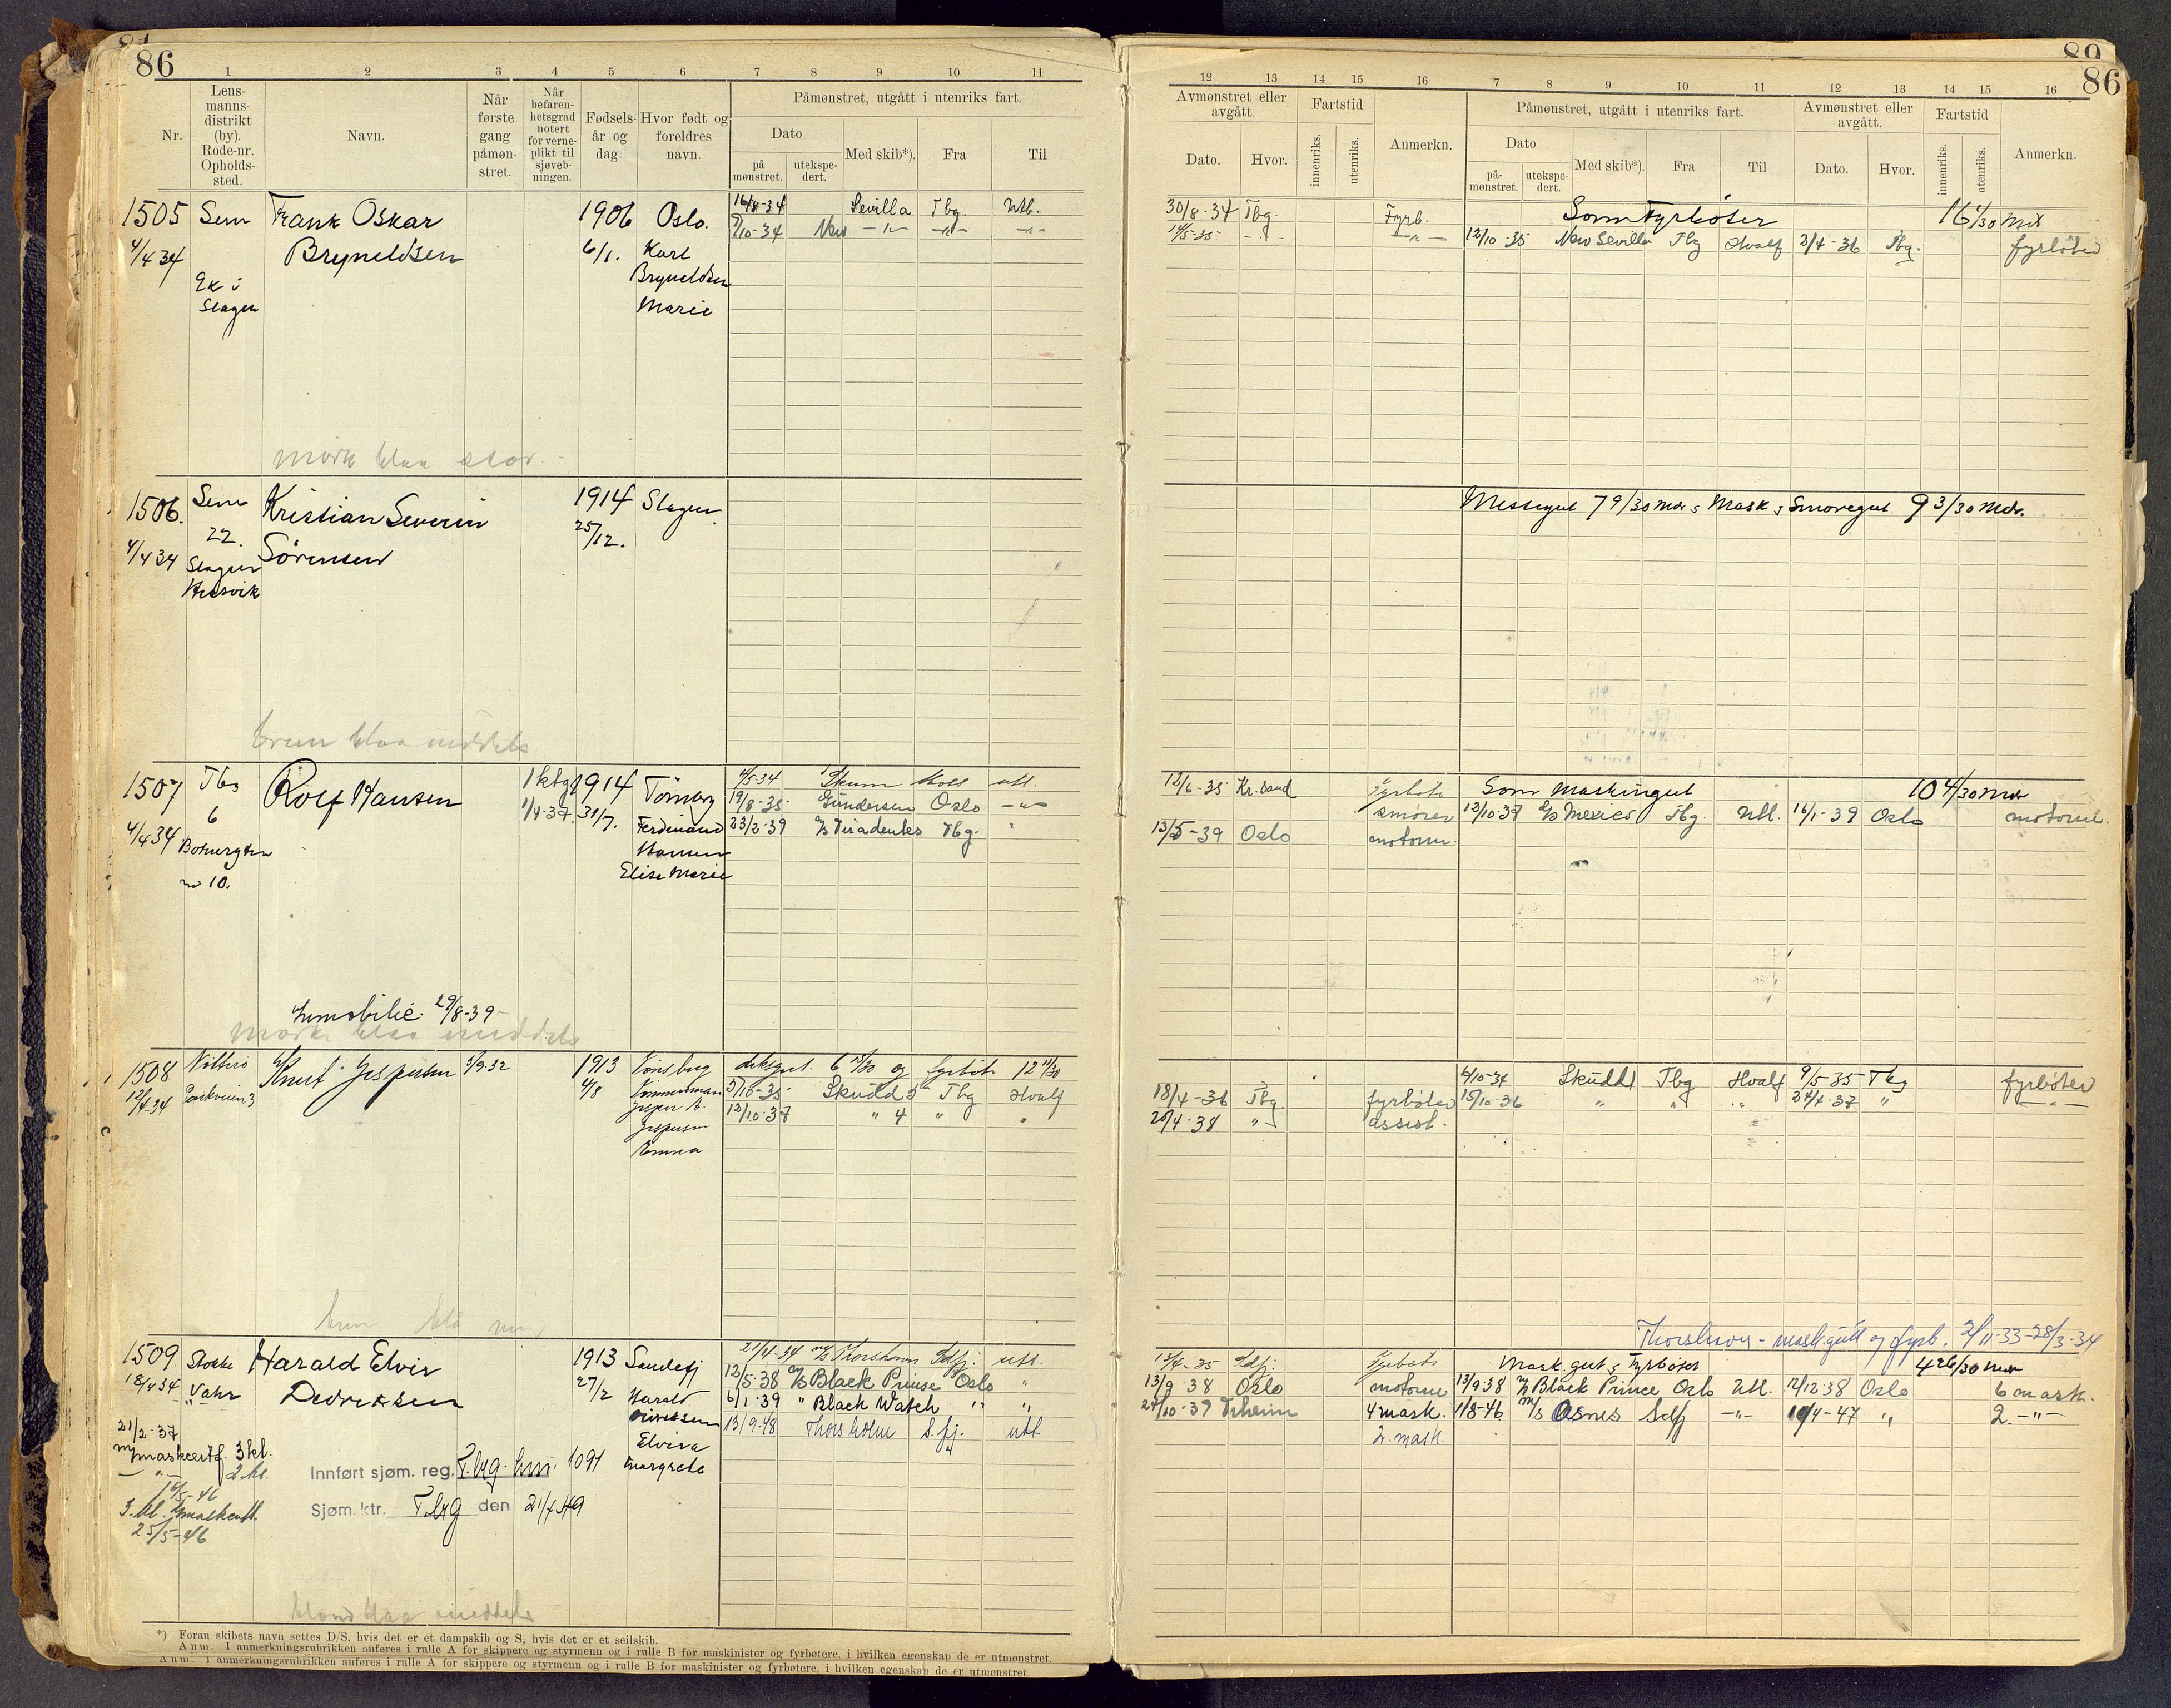 86
1 2 3 4 5 6 7 8 9 10 11
Nr.
Lens-
manns-
distrikt
(by).
Rode-nr.
Opholds-
sted.
Navn.
Når
første
gang
påmøn-
stret.
Når
befaren-
hetsgrad
notert
for verne-
plikt til
sjøveb-
ningen.
Fødsels-
år og
dag
Hvor født og
foreldres
navn.
Påmønstret, utgått i utenriks fart.
Dato
på
mønstret.
utekspe-
dert.
Med skib*).
Fra
Til
1505 Sem Frank Oskar 1906 Oslo. 16/8-34 Sevilla Tbg. Utl.
4/4 34 Bryneldsen 6/1. Karl 9/10-34 New -"- -"- -"-
Ek i Bryneldsen
Slagen Marie
mørk blaa stor.
1506. Sem Kristian Severin 1914 Slagen
22. 25/12.
4/4 34 Slagen Sørensen
Husvik
brun blaa middels
1507 Tbg Rolf Hansen 1 ktg 1914 Tønsberg 4/5-34 utl.
6 1/4-37. 31/7. Ferdinand 19/8-35 Gundersen Oslo -"-
4/4 34 Hansen 23/2-39 Tiradentes Tbg. "
no 10. Elise Marie
29/8-39
mørk blaa middels
1508 Nøtterø Knut Jespersen 3/9.32 1913 Tønsberg deksgut. 6 og fyrbøt 12
12/4 34 4/8 5/10-35 Skudd 5 Tbg Hvalf
Jesper A. 12/10-37 " 4 " "
Jespersen
Emma
brun blå
1509 Stokke Harald Elvir 1913 Sandefj 21/4-34 Thorshavn Sdfj. utl.
18/4 34 Vear Dedriksen 27/2 Harald 12/5-38 M/S Black Prinse Oslo "
Dirıksen 6/1-39 " Black Watch " "
21/2-37 Elvira 13/9-48 Thorsholm S.fj. utl.
maskcertf. 3 kl. Margrete
-"- 2. kl. Innført sjøm. reg. Tbg. hm. 1091
14/5-46
Sjøm. ktr. Tbg den 21/4 49
25/5-46
blond blaa middels
*) Foran skibets navn settes D/S, hvis det er et dampskib og S, hvis det er et seilskib.
Anm. I anmerkningsrubrikken anføres i rulle A for skippere og styrmenn og i rulle B for maskinister og fyrbøtere, i hvilken egenskap de er utmønstret.
Anm. I anmerkningsrubrikken anføres i rulle A for skippere og styrmenn og i rulle B for maskinister og fyrbøtere, i hvilken egenskap de er utmønstret.
89
86
12 13 14 15 16 7 8 9 10 11 12 13 14 15 16
Avmønstret eller
avgått.
Dato.
Hvor.
Fartstid
innenriks.
utenriks.
Anmerkn.
Påmønstret, utgått i utenriks fart.
Dato
på-
mønstret.
utekspe-
dert.
Med skib*).
Fra
Til
Avmønstret eller
avgått.
Dato.
Hvor.
Fartstid
innenriks.
utenriks.
Anmerkn.
30/8-34 Tbg. Fyrb. Som Fyrbøter 16 1/30 Md
14/5-35 -"- -"- 12/10 35 New Sevilla Tbg Hvalf 2/4-36 Tbg. fyrbøter
Messegut 7 9/30 Mdr, Mask, Smøregut 9 3/30 Mdr.
12/6-35 Kr.sand Fyrbøter Som Maskingut 10 4/30 Mdr
smører 12/10-37 Mexico Tbg. Utl. 16/1-39 Oslo motorm.
13/5-39 Oslo motorm.
6/10-34 Skudd 1 Tbg Hvalf 9/5-35 Tbg fyrbøter
18/4-36 Tbg. fyrbøter 15/10-36 " " " 24/4-37 " -"-
20/4-38 " assist.
Thorshavn - mask.gutt og fyrb. 2/11-33-28/3-34
15/4-35 Sdfj. Fyrbøter Mask.gut, Fyrbøter 4 26/30 Mdr
13/9 38 Oslo motorm 13/9 38 M/S Black Prince Oslo Utl. 12/12 38 Oslo 6 mask.
24/10-39 Trheim 4 mask. 1/8-46 M/S Osnes Sdfj -"- 10/4-47 " 2. -"-
2. mask.